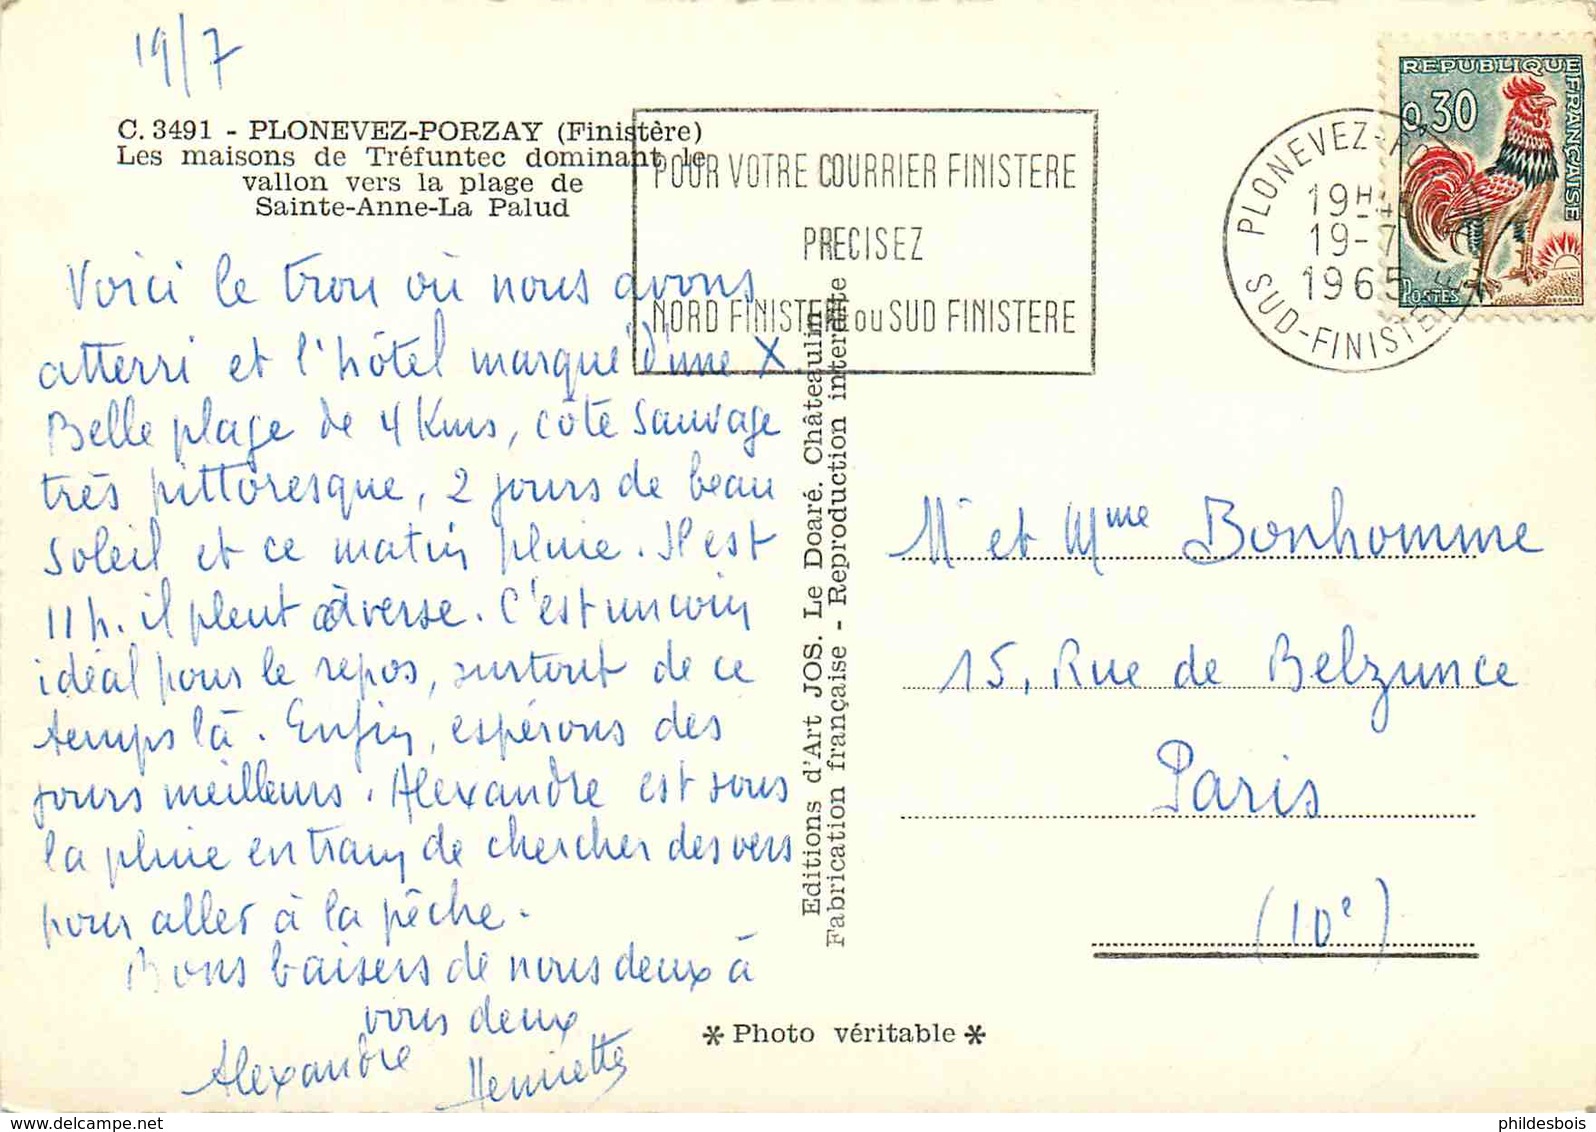 19/7
C. 3491 - PLONEVEZ-PORZAY (Finistère)
Les maisons de Tréfuntec dominant le
vallon vers la plage de
Sainte-Anne-La Palud
Voici le trou où nous avons
atterri et l'hôtel marqué d'une X
Belle plage de 4 Kms, côte sauvage
très pittoresque, 2 jours de beau
soleil et ce matin pluie. Il est
11 h. il pleut à verse. C'est un coin
idéal pour le repos, surtout de ce
temps là. Enfin, espérons des
jours meilleurs. Alexandre est sous
la pluie en train de chercher des vers
pour aller à la pêche.
Bons baisers de nous deux à
vous deux
Alexandre Henriette
POUR VOTRE COURRIER FINISTERE
PRECISEZ
NORD FINISTERE ou SUD FINISTERE
Editions d'Art JOS. Le Doaré. Châteaulin
Fabrication française - Reproduction interdite
PLONEVEZ-PO
19H45
19-7
1965
SUD-FINISTERE
REPUBLIQUE FRANÇAISE
0,30
POSTES
DECARIS
Mr et Mme Bonhomme
15, Rue de Belzunce
Paris
(10e)
* Photo véritable *
phildesbois